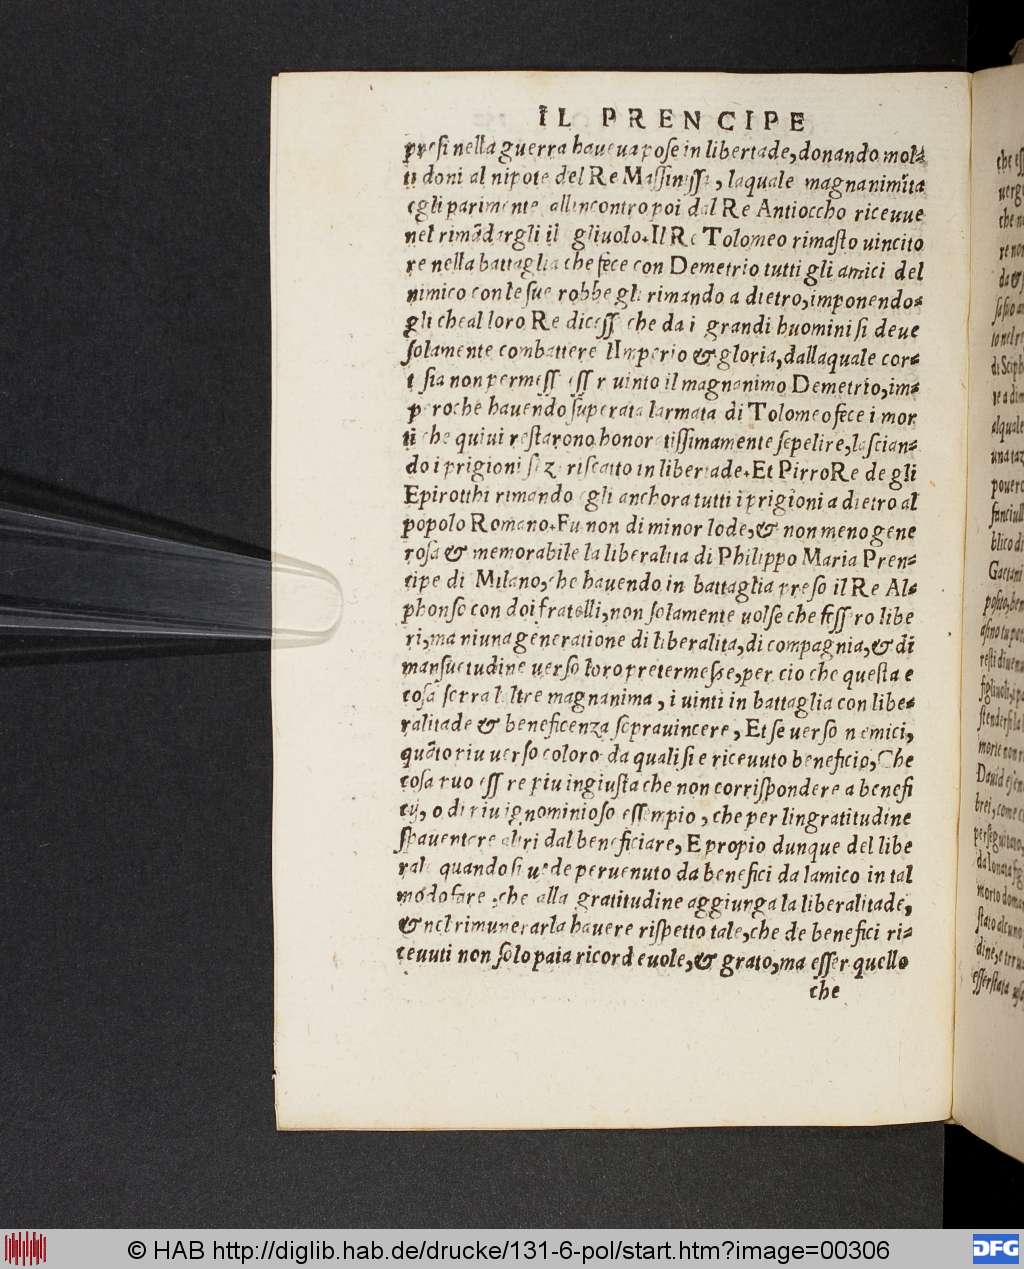 IL PRENCIPE
presi nella guerra haueua pose in libertade, donando mol-
ti doni al nipote del Re Massinissa, laquale magnanimita
egli parimente allincontro poi dal Re Antioccho riceuue
nel rimādargli il gliuolo. Il Re Tolomeo rimasto uincito
re nella battaglia che fece con Demetrio tutti gli amici del
nimico con le sue robbe gli rimando a dietro, imponendo-
gli che al loro Re dicess che da i grandi huomini si deue
solamente combattere lImperio & gloria, dallaquale cor-
t sia non permess ess r uinto il magnanimo Demetrio, im-
peroche hauendo superata larmata di Tolomeo fece i mor
ti che quiui restarono honoratissimamente sepelire, lascian-
do i prigioni sēz riscatto in libertade. Et Pirro Re de gli
Epirotthi rimando egli anchora tutti i prigioni a dietro al
popolo Romano. Fu non di minor lode, & non meno gene
rosa & memorabile la liberalita di Philippo Maria Pren-
cipe di Milano, che hauendo in battaglia preso il Re Al-
phonso con doi fratelli, non solamente uolse che fessero libe
ri, ma niuna generatione di liberalita, di compagnia, & di
mansuetudine uerso loro pretermesse, per cio che questa e
cosa serra laltre magnanima, i uinti in battaglia con libe-
ralitade & beneficenza soprauincere, Et se uerso nemici,
quāto riu uerso coloro da quali si e riceuuto beneficio, Che
cosa puo essre piu ingiusta che non corrispondere a benefi
cij, o di piu ignominioso essempio, che per lingratitudine
spauentere altri dal beneficiare, E propio dunque del libe
rale quando si uede peruenuto da benefici da lamico in tal
modo fare, che alla gratitudine aggiunga la liberalitade,
& nel rimunerarla hauere rispetto tale, che de benefici ri-
ceuuti non solo paia ricordeuole, & grato, ma esser quello
che
© HAB http://diglib.hab.de/drucke/131-6-pol/start.htm?image=00306
DFG